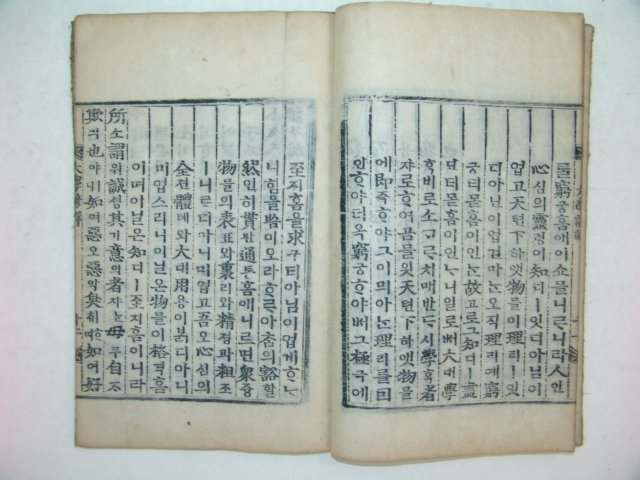 理窮궁홈애이쇼믈니ᄅᆞ니라人인
心심의靈령이知디ㅣ잇디아닐이
업고天텬下하앳物믈이理리ㅣ잇
디아닐이업건마ᄂᆞᆫ오직理리예窮
궁티몯홈이인ᄂᆞᆫ故고로그知디ㅣ盡
진티몯홈이인ᄂᆞ니일로ᄡᅥ大대學
학비로소ᄀᆞᄅᆞ치매반ᄃᆞ시學ᄒᆞᆨ者
쟈로ᄒᆞ여곰믈잇天텬下하앳物믈
에即즉ᄒᆞ야그이믜아ᄂᆞᆫ理리를因
인ᄒᆞ야더옥窮궁ᄒᆞ야ᄡᅥ그極극애
至지홈을求구티아님이업게ᄒᆞᄂᆞ
니힘ᄡᅳᆷ이오라ᄒᆞᄅᆞ아ᄎᆞᆷ의豁활
然연히貫관通통홈애니르면衆즁
物믈의表표와裏리와精졍과粗조
ㅣ니르디아님이업고吾오心심의
全젼體톄와大대用용이붉디아니
미업스리니이닐온物믈이格격홈
이며이닐온知디ㅣ至지홈이니라
所소謂위誠셩其기意의者쟈ᄂᆞᆫ毋무自ᄌᆞ
欺긔也야ㅣ니如여惡오惡악臭ᄎᆔᄒᆞ며如여好
大學諺解